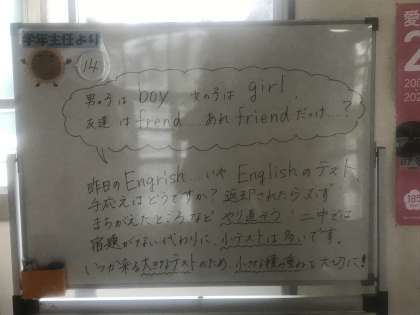 学年主任より
14
男の子は boy 女の子は girl、
友達は frend……あれ friend だっけ……?
昨日の Engrish……いや English のテスト、
手応えはどうですか? 返却されたら必ず
まちがえたところなど やり直そう 二中では
宿題がない代わりに、小テストは多いです。
いつか来る大きなテストのため、小さな積み重ねを大切に!
愛
2
20
202
185